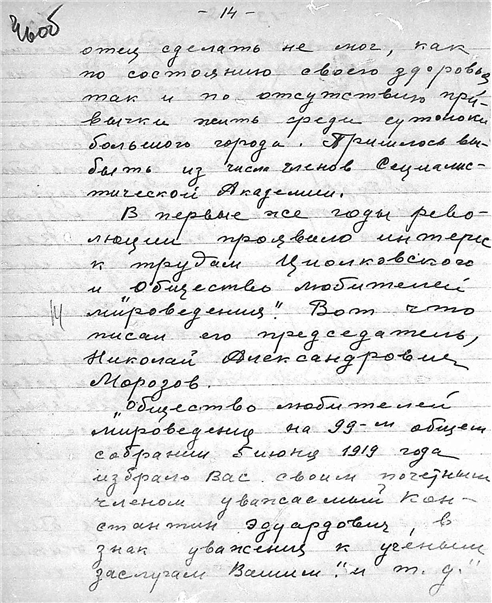 - 14 -
отец сделать не мог, как
по состоянию своего здоровья
так и по отсутствию при-
вычки жить среди сутолоки
большого города. Пришлось вы-
быть из числа членов Социалис-
тической Академии.
В первые же годы рево-
люции проявило интерес
к трудам Циолковского
и Общество любителей
14 "мироведения". Вот что
писал его председатель,
Николай Александрович
Морозов.
"Общество любителей
мироведения на 99-м общем
собрании 5 июня 1919 года
избрало Вас своим почетным
членом уважаемый Кон-
стантин Эдуардович, в
знак уважения к ученым
заслугам Вашим" и т.д."